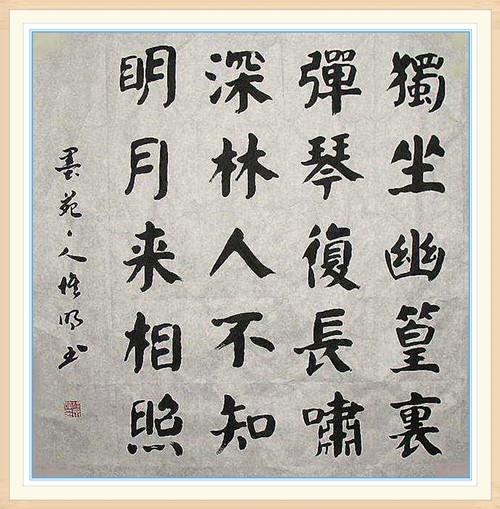 獨坐幽篁裏
彈琴復長嘯
深林人不知
明月来相照
墨苑丶人惟明书